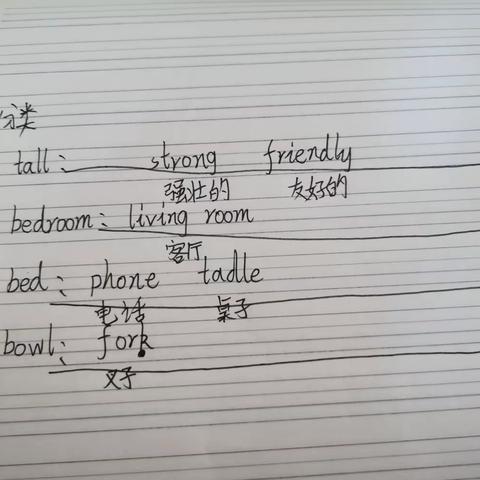 分类
tall: strong friendly
强壮的 友好的
bedroom: living room
客厅
bed: phone tadle
电话 桌子
bowl: fork
叉子